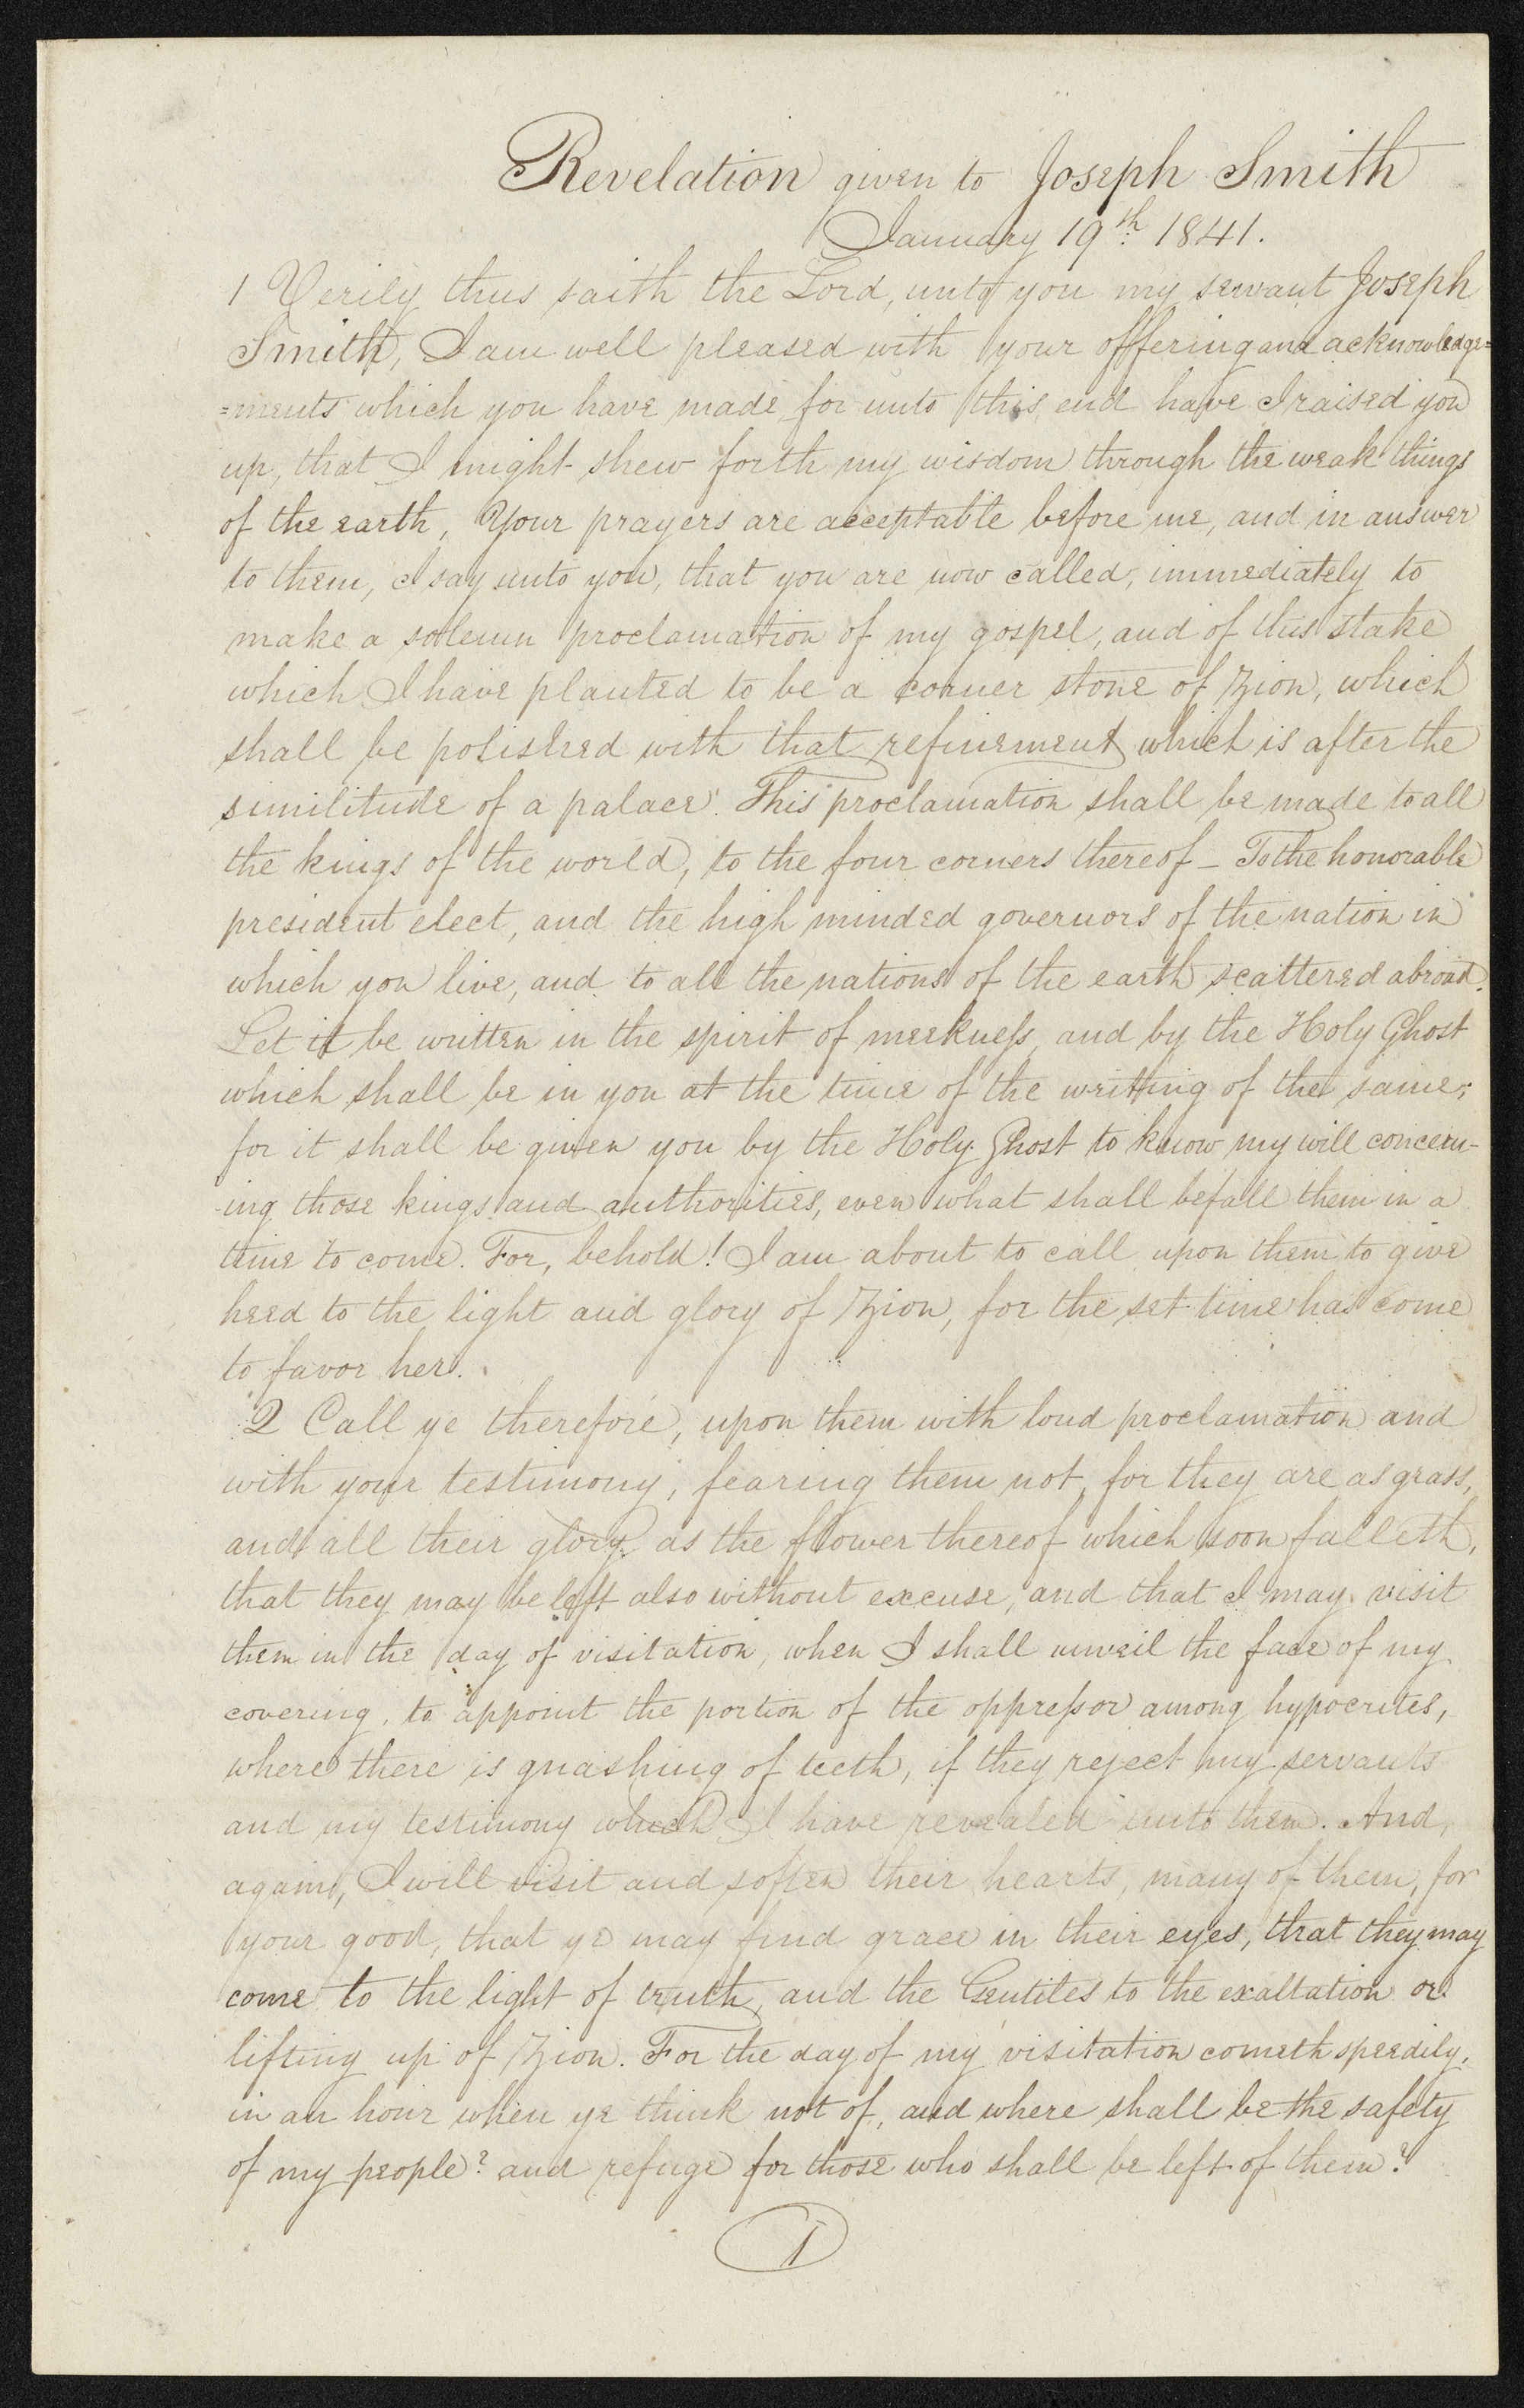 Revelation given to Joseph Smith
January 19th 1841.
1 Verily thus saith the Lord, unto you my servant Joseph
Smith, I am well pleased with your offering and acknowledge=
=ments which you have made, for unto this end have I raised you
up, that I might shew forth my wisdom through the weak things
of the earth, Your prayers are acceptable before me, and in answer
to them, I say unto you, that you are now called, immediately to
make a solemn proclamation of my gospel, and of this stake
which I have planted to be a corner stone of Zion, which
shall be polished with that refinement which is after the
similitude of a palace. This proclamation shall be made to all
the kings of the world, to the four corners thereof – To the honorable
president elect, and the high minded governors of the nation in
which you live, and to all the nations of the earth scattered abroad.
Let it be written in the spirit of meekness, and by the Holy Ghost
which shall be in you at the time of the writing of the same;
for it shall be given you by the Holy Ghost to know my will concern-
-ing those kings and authorities, even what shall befall them in a
time to come. For, behold! I am about to call upon them to give
heed to the light and glory of Zion, for the set time has come
to favor her.
2 Call ye therefore, upon them with loud proclamation and
with your testimony, fearing them not, for they are as grass,
and all their glory as the flower thereof which soon falleth,
that they may be left also without excuse, and that I may visit
them in the day of visitation, when I shall unveil the face of my
covering, to appoint the portion of the oppressor among hypocrites,
where there is gnashing of teeth, if they reject my servants
and my testimony which I have revealed unto them. And,
again, I will visit and soften their hearts, many of them, for
your good, that ye may find grace in their eyes, that they may
come to the light of truth, and the Gentiles to the exaltation or
lifting up of Zion. For the day of my visitation cometh speedily,
in an hour when ye think not of, and where shall be the safety
of my people? and refuge for those who shall be left of them?
1